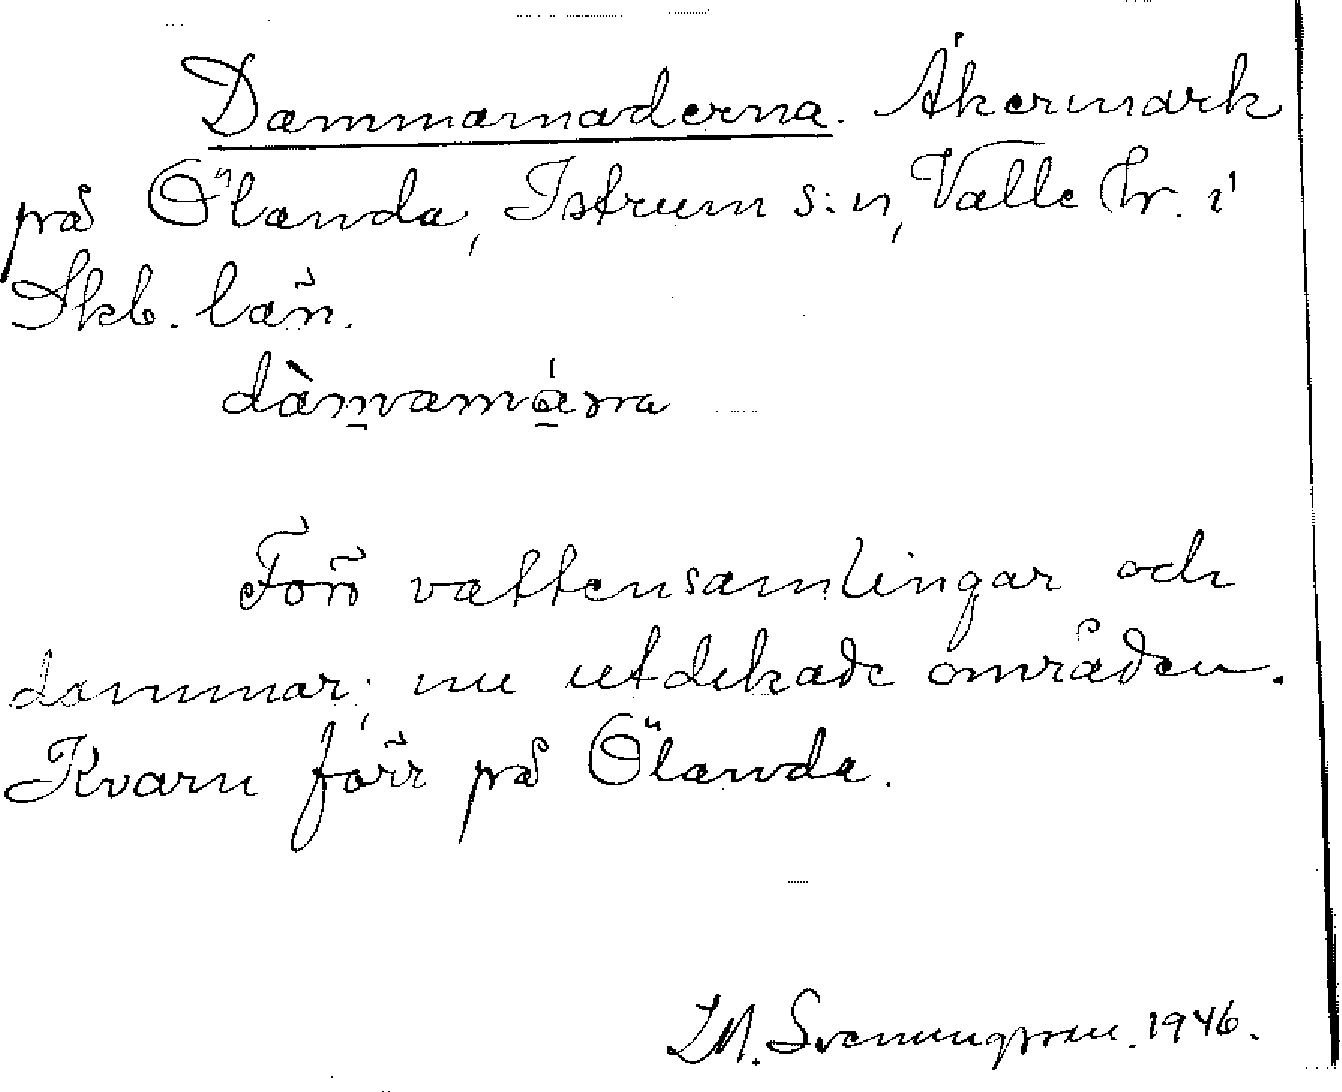 Dammarnaderna. Åkermark
på Ölanda, Istrum s:n, Valle hr. i
Skb. län.
Förr vattensamlingar och
dammar; nu utdikade områden.
Kvarn förr på Ölanda.
Svenungsson. 1946.